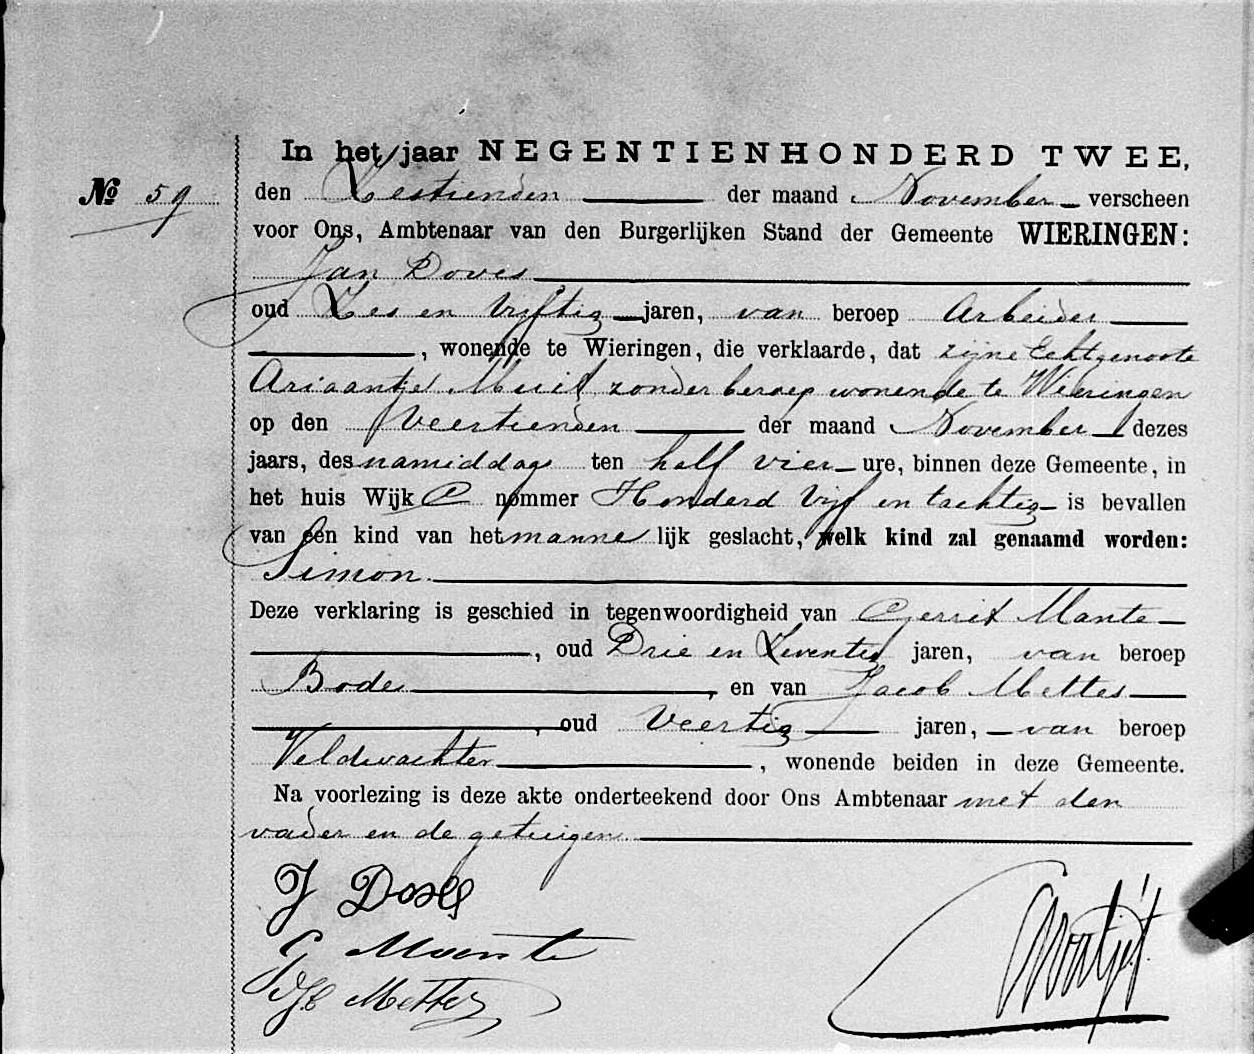 In het jaar NEGENTIENHONDERD TWEE,
No 59
den Zestienden der maand November verscheen
voor Ons, Ambtenaar van den Burgerlijken Stand der Gemeente WIERINGEN:
Jan Doves
oud Zes en Vijftig jaren, van beroep Arbeider
, wonende te Wieringen, die verklaarde, dat zijne Echtgenoote
Ariaantje Muit zonder beroep wonende te Wieringen
op den Veertienden der maand November dezes
jaars, des namiddags ten half vier ure, binnen deze Gemeente, in
het huis Wijk C nommer Honderd Vijf en tachtig is bevallen
van een kind van het mannelijk geslacht, welk kind zal genaamd worden:
Simon.
Deze verklaring is geschied in tegenwoordigheid van Gerrit Mante
, oud Drie en Zeventig jaren, van beroep
Bode, en van Jacob Mettes
, oud Veertig jaren, van beroep
Veldwachter, wonende beiden in deze Gemeente.
Na voorlezing is deze akte onderteekend door Ons Ambtenaar met den
vader en de getuigen.
J Doves
G Mante
Mettes